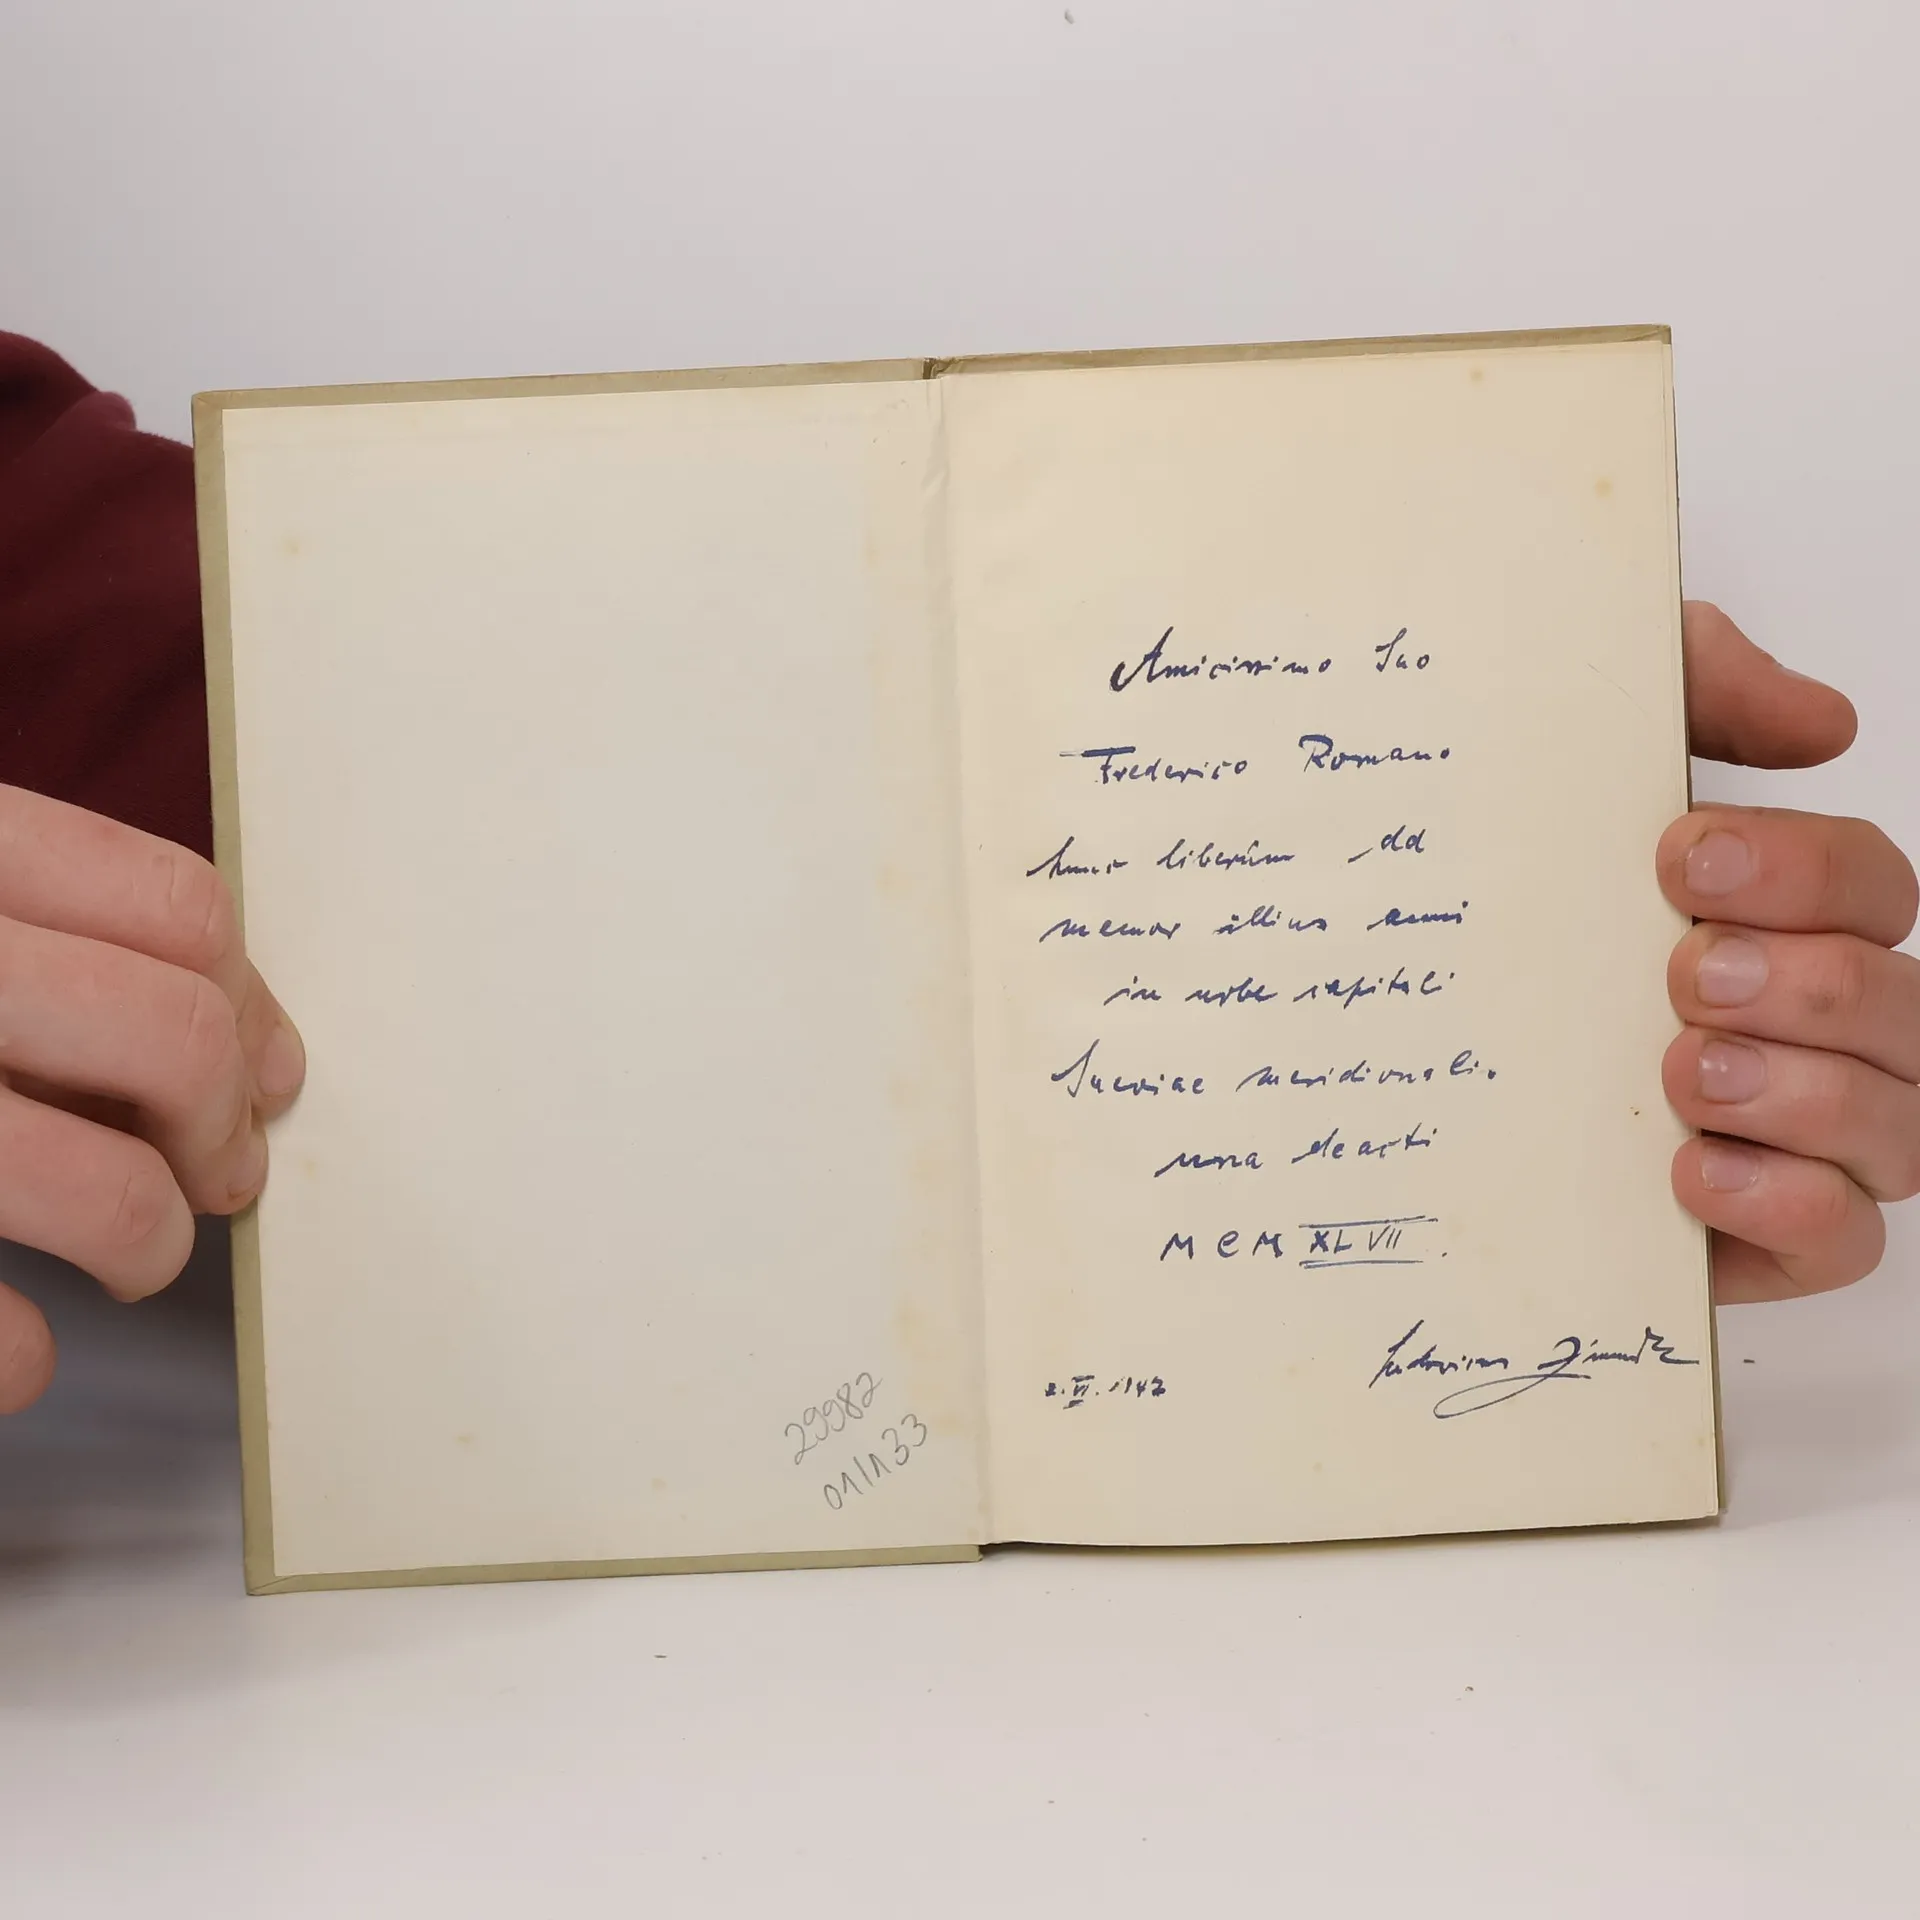 29982
01/133
Amicissimo Suo
Frederico Romano
hunc liberum dd
memor illius anni
in urbe capitali
Sueviae meridionali.
una deacti
MCMXLVII.
2. VI. 1947
Ludovicus